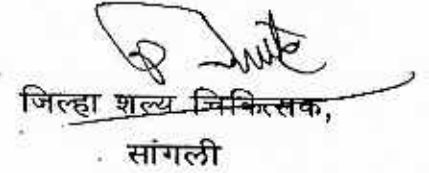 जिल्हा शल्य चिकित्सक,
सांगली